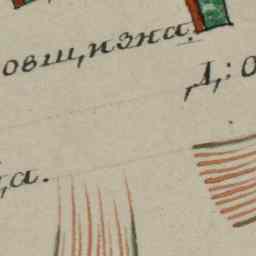 овщизна.
Д: о
ца.